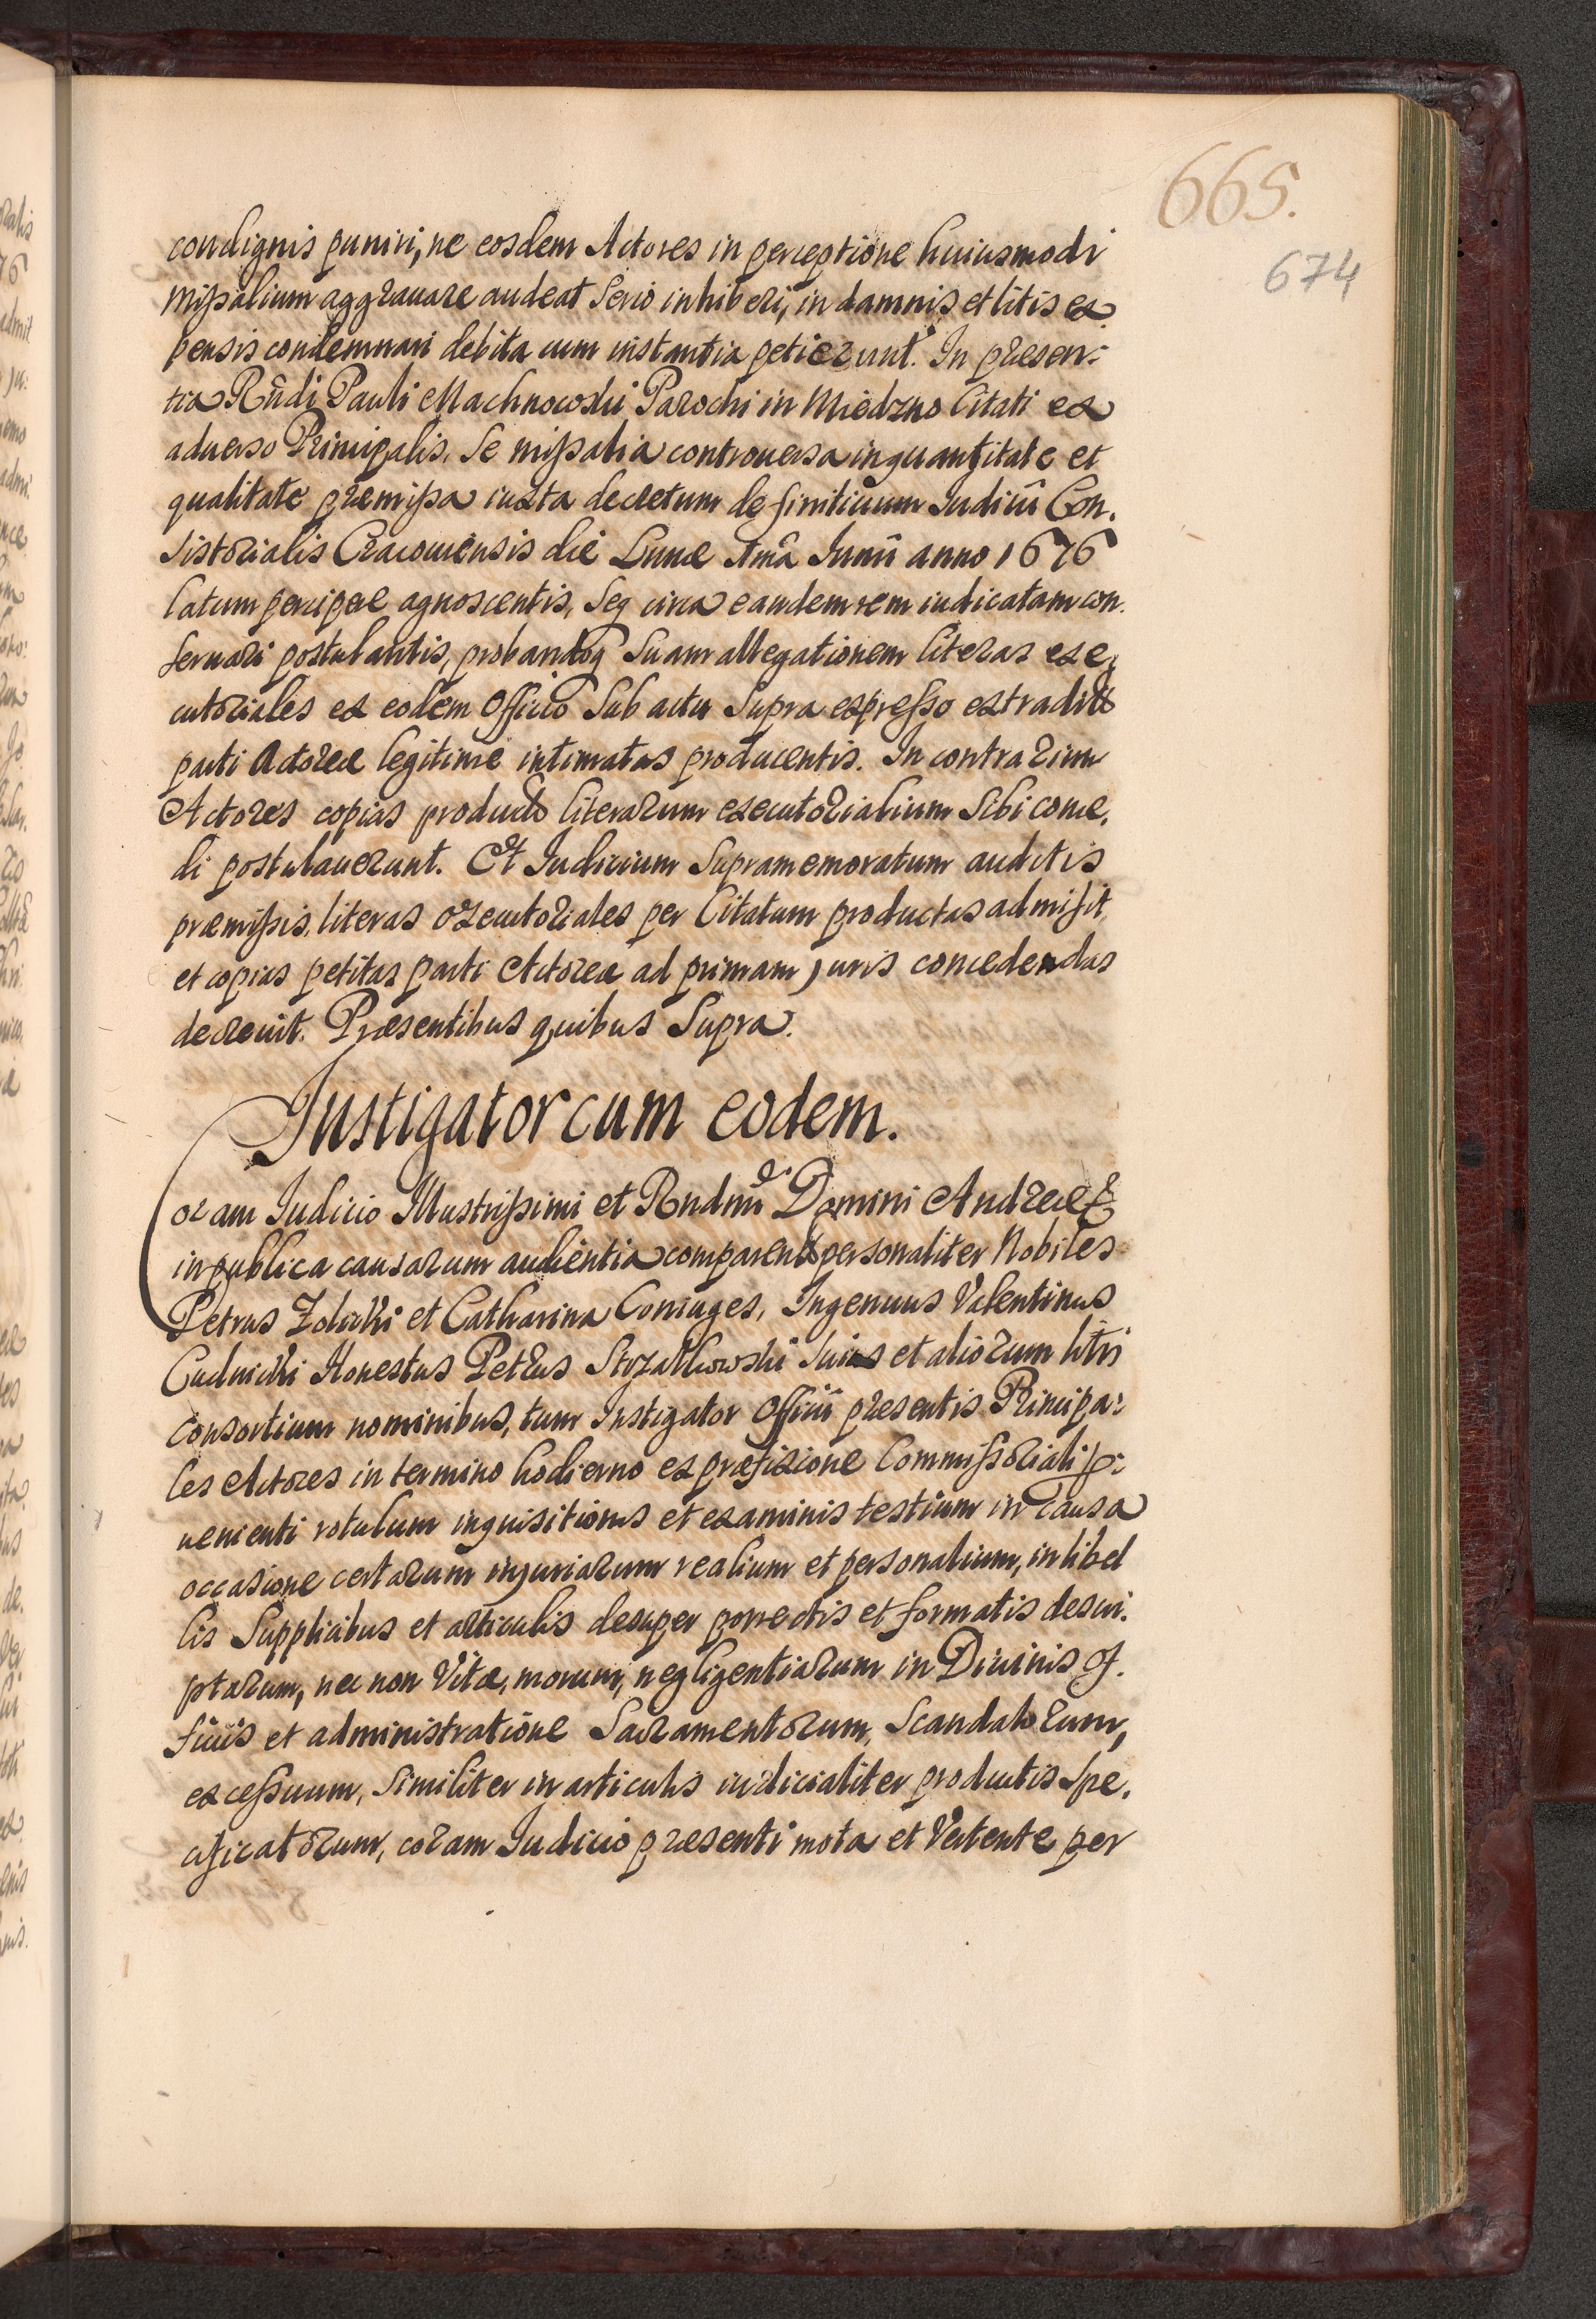 665.
674
condignis puniri, ne eosdem Actores in perceptione huiusmodi
missalium aggrauare audeat serio inhiberi, in damnis et litis ex
pensis condemnari debita cum instantia petierunt. In præsen:
tia Rñdi Pauli Machnowski Parochi in Miedzno Citati ex
aduerso Principalis, se missalia controuersa in quantitate et
qualitate præmissa iuxta decretum definitiuum Iudicii Con.
sistorialis Cracouiensis die Lunæ 1mâ Iunii anno 1676
latum percipere agnoscentis, seq circa eandem rem iudicatam con.
seruari postulantis, probandoq suam allegationem literas exe,
cutoriales ex eodem Officio sub actu supra expresso extraditas
parti Actoreæ legitime intimatas producentis. In contrarium
Actores copias productarum literarum executorialium sibi conce,
di postulauerunt. Et Iudicium supramemoratum auditis
præmissis, literas exeutoriales per Citatum productas admisit,
et copias petitas parti Actoreæ ad primam juris concedendas
decreuit. Præsentibus quibus supra.
Instigator cum eodem.
Coram Iudicio Illustrissimi et Rndmi Domini Andreæ &
in publica causarum audientia comparentes personaliter Nobiles
Petrus Zolicki et Catharina Coniuges, Ingenuus Valentinus
Cudnichi Honestus Petrus Strzalkowski suis et aliorum litis
consortium nominibus, tum Instigator Officii præsentis Principa:
les Actores in termino hodierno ex præfixione Commissoriali p:
uenienti rotulum inquisitionis et examinis testium in causa
occasione certarum injuriarum realium et personalium, in libel
lis supplicibus et articulis desuper porrectis et formatis descri:
ptarum, nec non Vitæ, morum, negligentiarum in Diuinis of.
ficiis et administratione Sacramentorum, scandalorum,
excessuum, similiter in articulis iudicialiter productis spe.
cificatorum, coram Iudicio præsenti mota et Vertente per